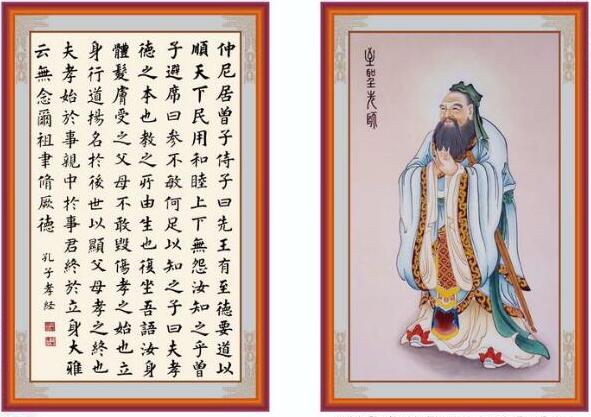 仲尼居曾子侍子曰先王有至德要道以
順天下民用和睦上下無怨汝知之乎曾
子避席曰參不敏何足以知之子曰夫孝
德之本也教之所由生也復坐吾語汝身
體髮膚受之父母不敢毀傷孝之始也立
身行道揚名於後世以顯父母孝之終也
夫孝始於事親中於事君終於立身大雅
云無念爾祖聿脩厥德
孔子孝经
至聖先師